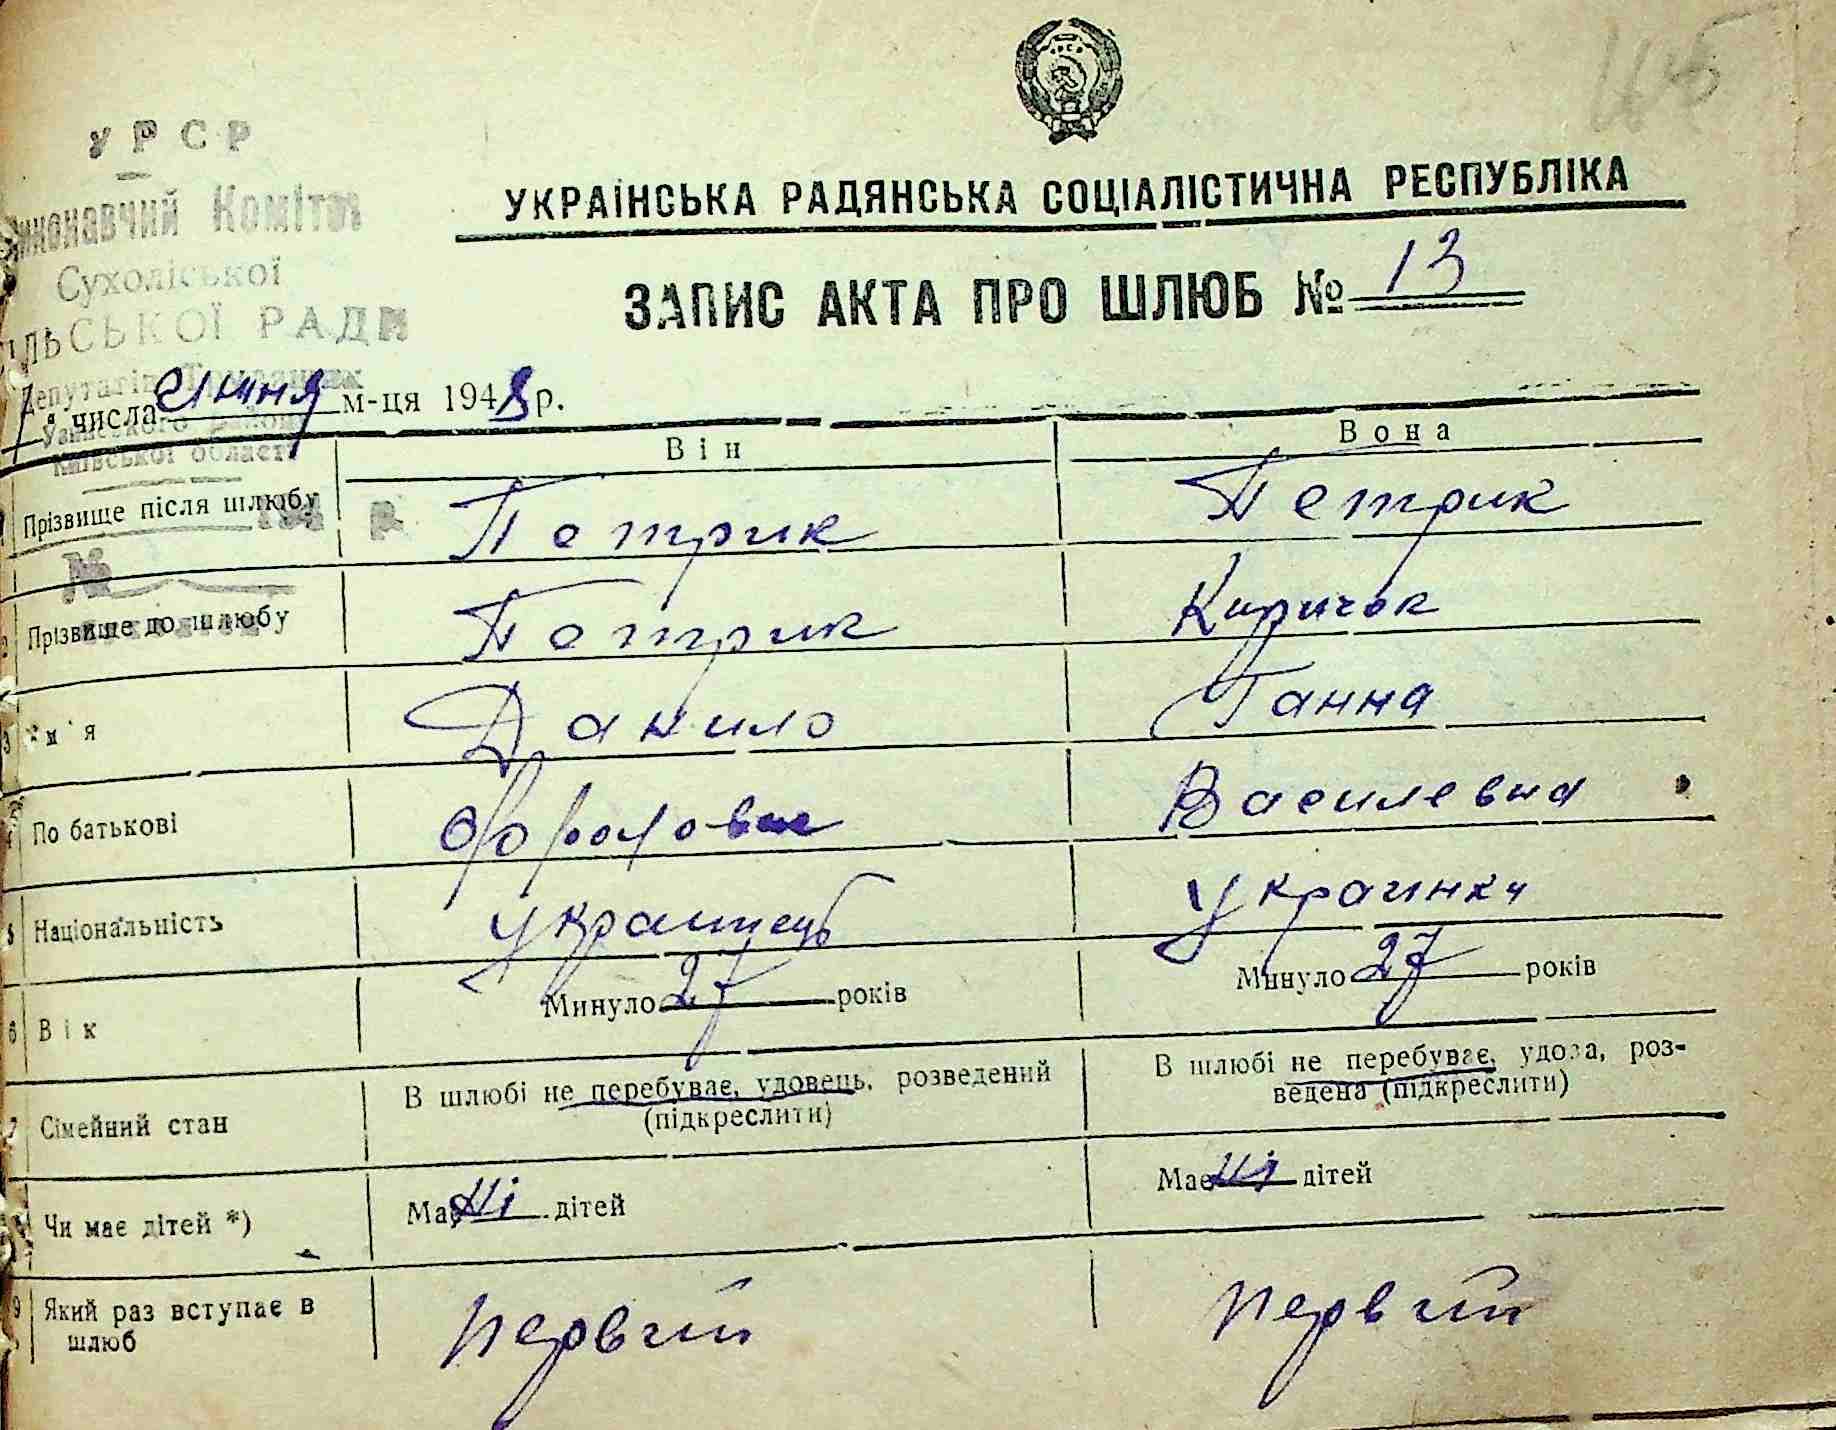 115
УРСР
Виконавчий Комітет
Сухоліської
СІЛЬСЬКОЇ РАДИ
Депутатів Трудящих
Узинського району
Київської області
194 р.
№
УРСР
УКРАЇНСЬКА РАДЯНСЬКА СОЦІАЛІСТИЧНА РЕСПУБЛІКА
ЗАПИС АКТА ПРО ШЛЮБ № 13
числа м-ця 1948 р.
Він Вона
Прізвище після шлюбу Петрик Петрик
2 Прізвище до шлюбу Петрик Киричок
3 Ім'я Данило Ганна
4 По батькові Фролович Василевна
5 Національність українець украинка
6 Вік Минуло 27 років Минуло 27 років
7 Сімейний стан В шлюбі не перебуває, удовець, розведений (підкреслити) В шлюбі не перебуває, удова, роз-
ведена (підкреслити)
Чи має дітей *) Має ні дітей Має ні дітей
9 Який раз вступає в
шлюб первий первий